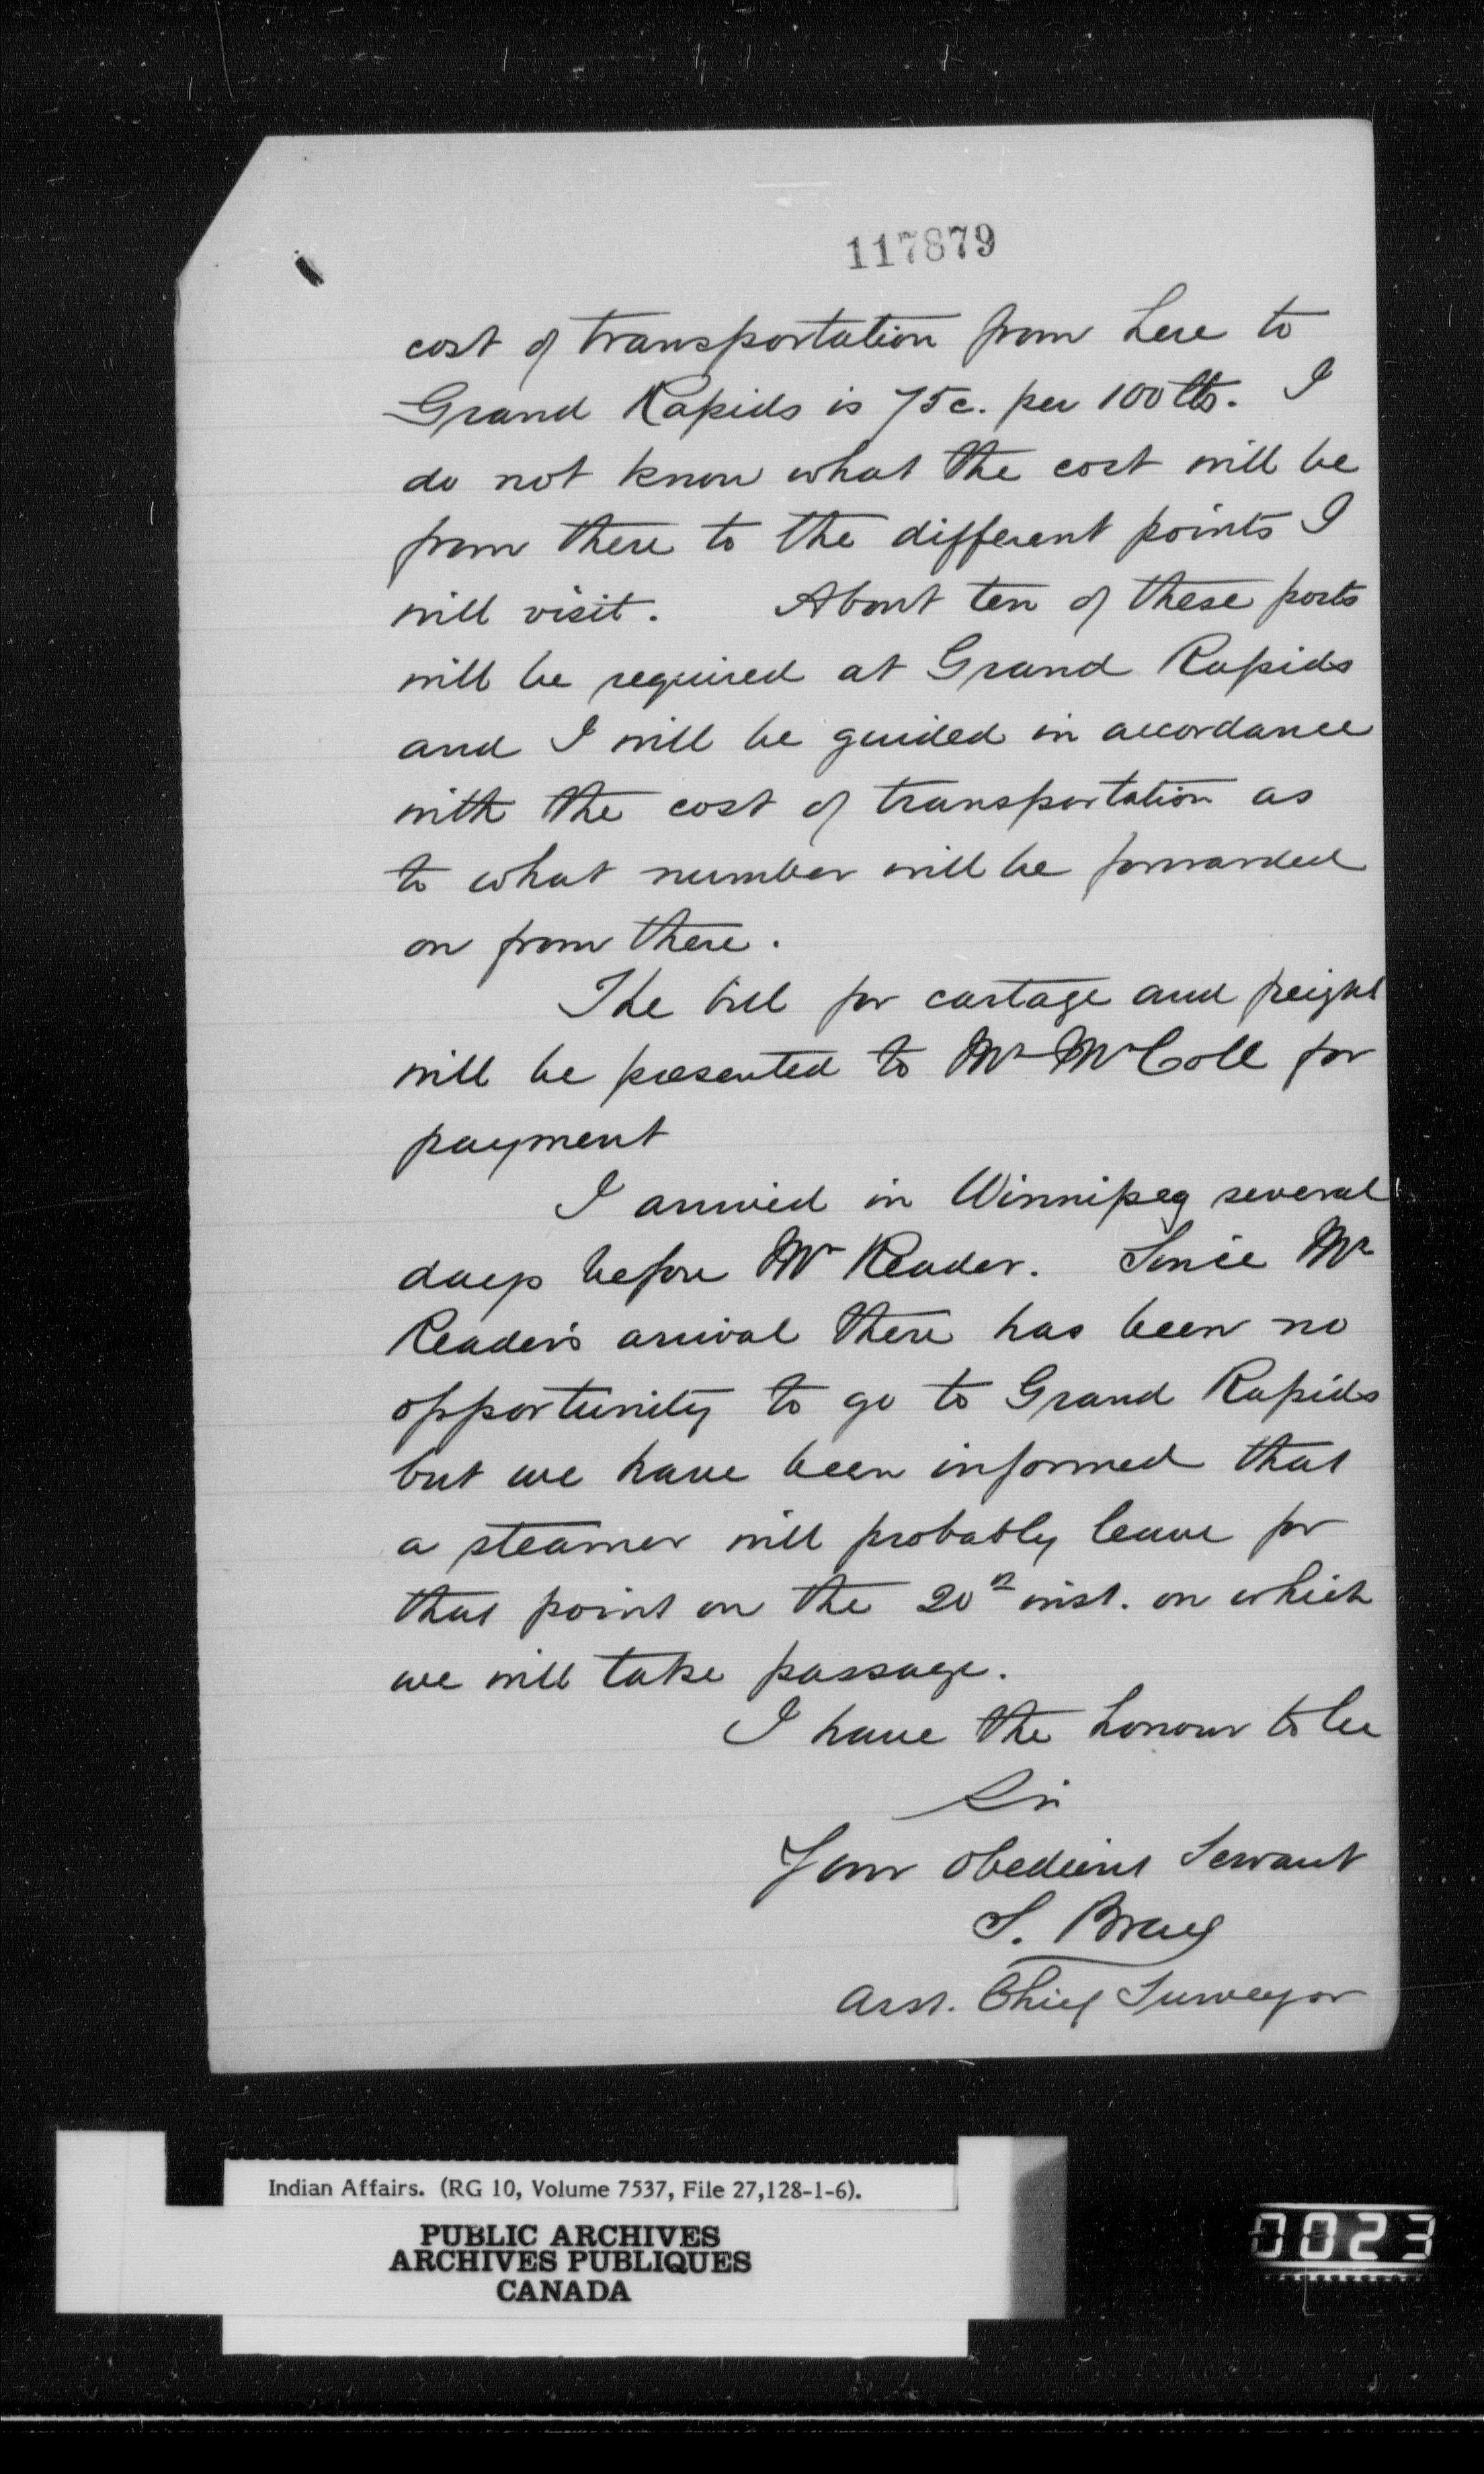 117879
cost of transportation from here to
Grand Rapids is 75c. per 100 lbs. I
do not know what the cost will be
from there to the different points I
will visit. About ten of these posts
will be required at Grand Rapids
and I will be guided in accordance
with the cost of transportation as
to what number will be forwarded
on from there.
The bill for cartage and freight
will be presented to Mr McColl for
payment
I arrived in Winnipeg several
days before Mr Reader. Since Mr
Reader's arrival there has been no
opportunity to go to Grand Rapids
but we have been informed that
a steamer will probably leave for
that point on the 20th inst. on which
we will take passage.
I have the honour to be
Sir
Your obedient Servant
S. Bray
Asst. Chief Surveyor
Indian Affairs. (RG 10, Volume 7537, File 27,128-1-6).
PUBLIC ARCHIVES
ARCHIVES PUBLIQUES
CANADA
0023